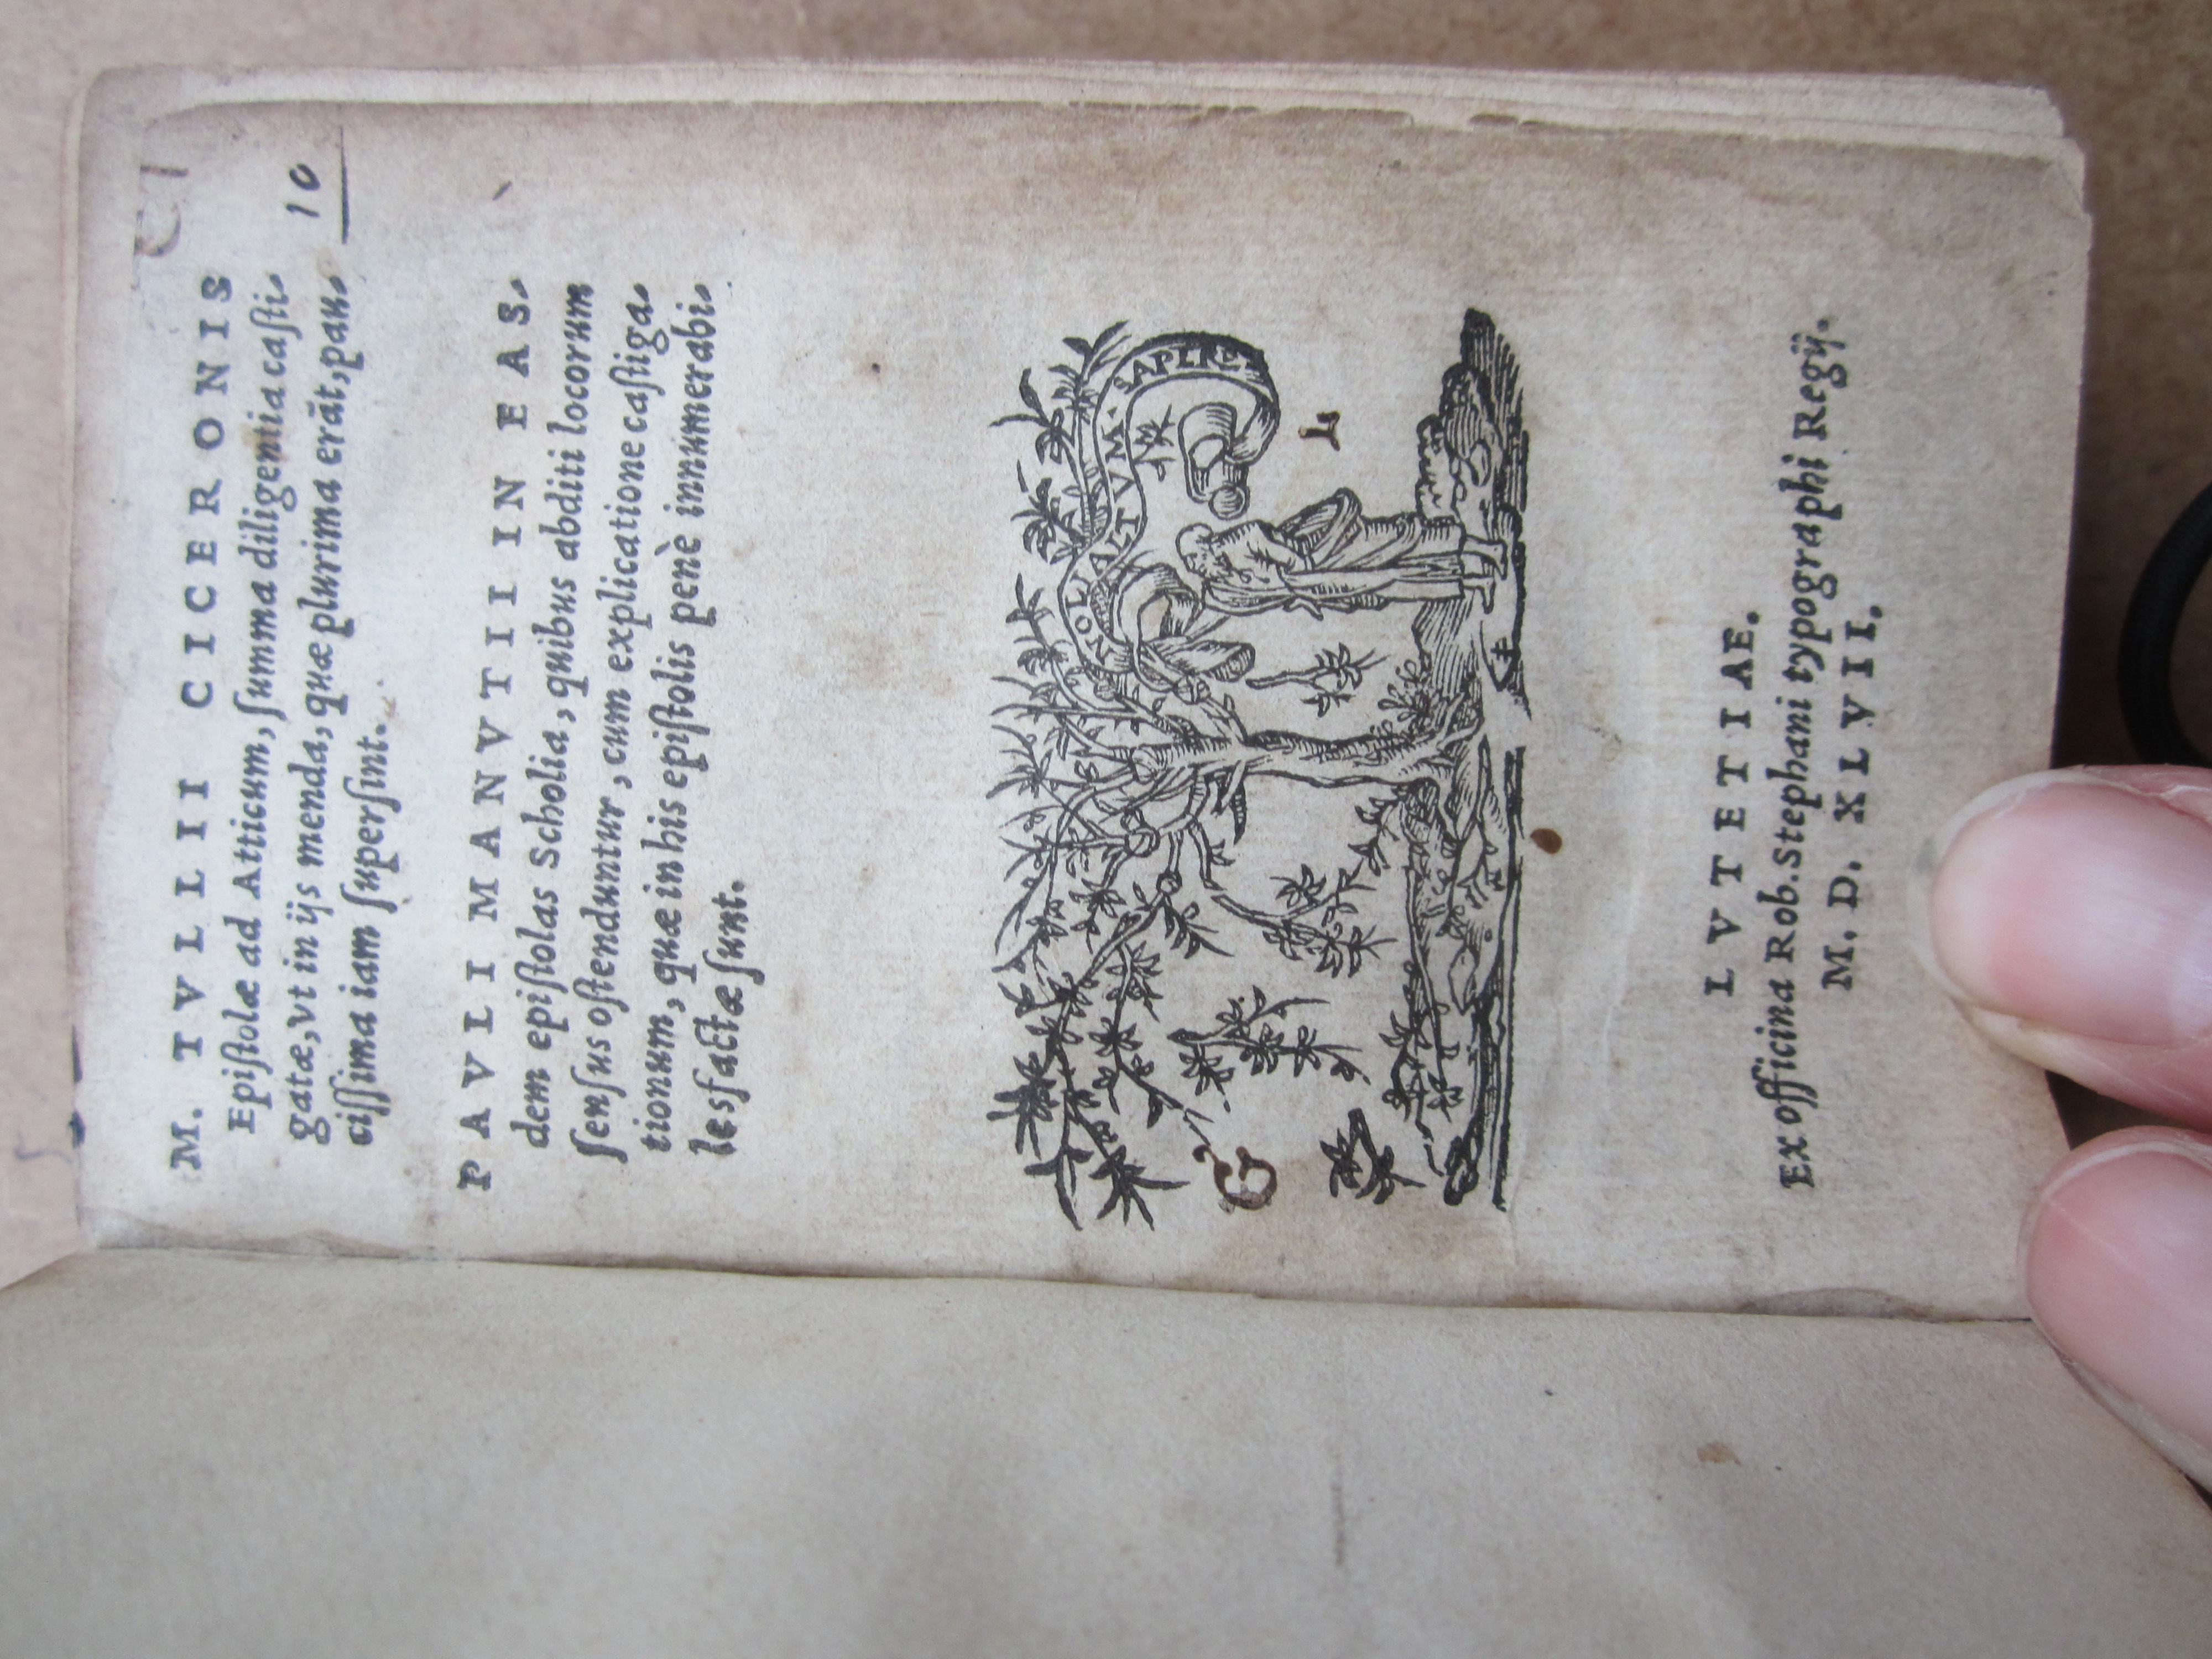 M. TVLLII CICERONIS
Epiſtolæ ad Atticum, ſumma diligentia caſti-
gatæ, vt in ijs menda, quæ plurima erāt, pau-
ciſſima iam ſuperſint.
10
PAVLI MANVTII IN EAS-
dem epiſtolas Scholia, quibus abditi locorum
ſenſus oſtenduntur, cum explicatione caſtiga-
tionum, quæ in his epiſtolis penè innumerabi-
les factæ ſunt.
NOLI ALTVM SAPERE
G
L
LVTETIAE.
Ex officina Rob. Stephani typographi Regij.
M. D. XLVII.